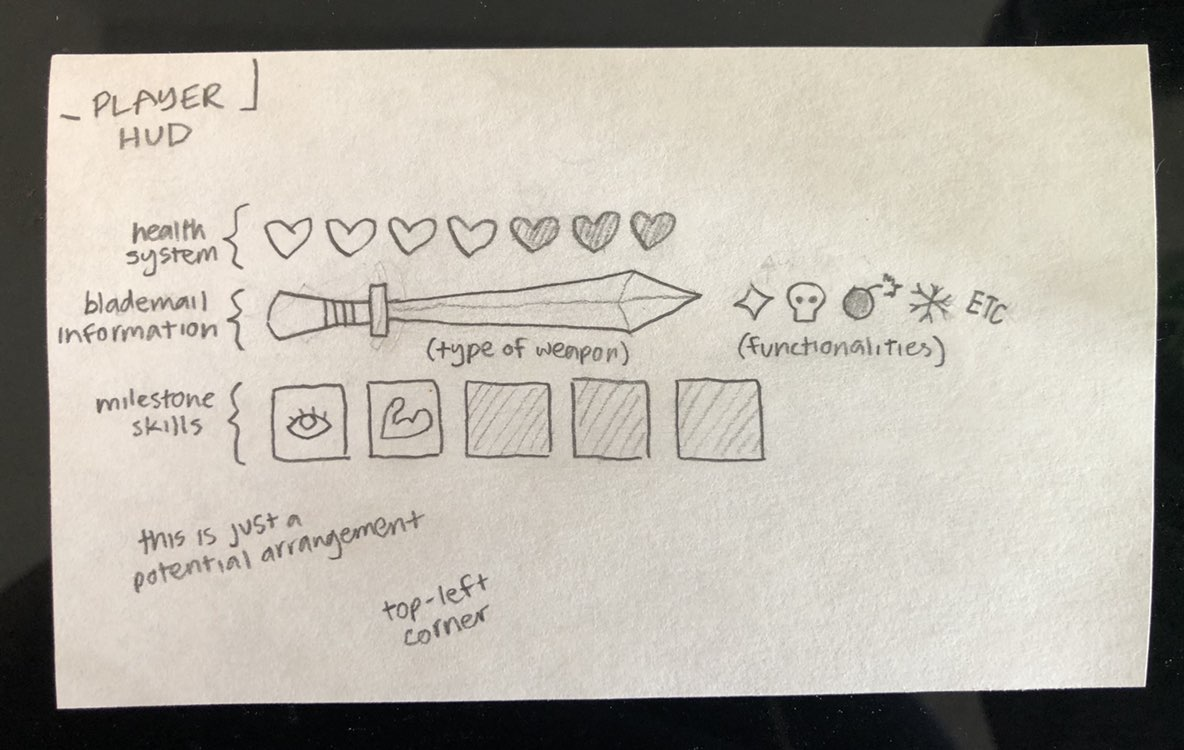 PLAYER
HUD
health
system
blademail
information
(type of weapon)
ETC
(functionalities)
milestone
skills
this is just a
potential arrangement
top-left
corner